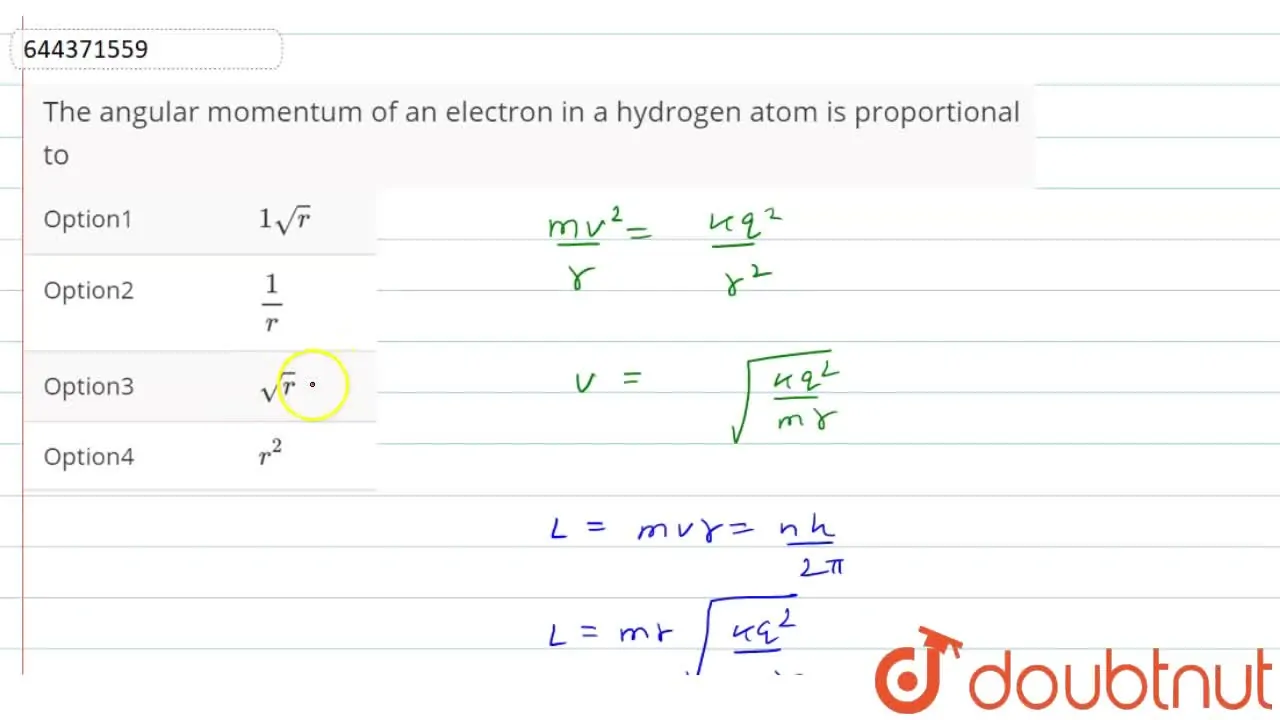 644371559
The angular momentum of an electron in a hydrogen atom is proportional
to
Option1 1√r
Option2 1/r
Option3 √r
Option4 r²
mv²/r = kq²/r²
v = √(kq²/mr)
L = mvr = nh/2π
L = mr √(kq²
doubtnut